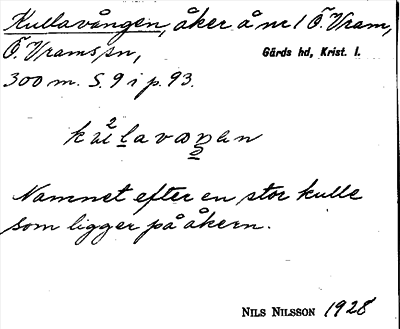 Kullavången, åker å nr 1 Ö. Vram,
Ö. Vrams sn, Gärds hd, Krist. l.
300 m. S. 9 i p. 93.
Namnet efter en stor kulle
som ligger på åkern.
NILS NILSSON 1928